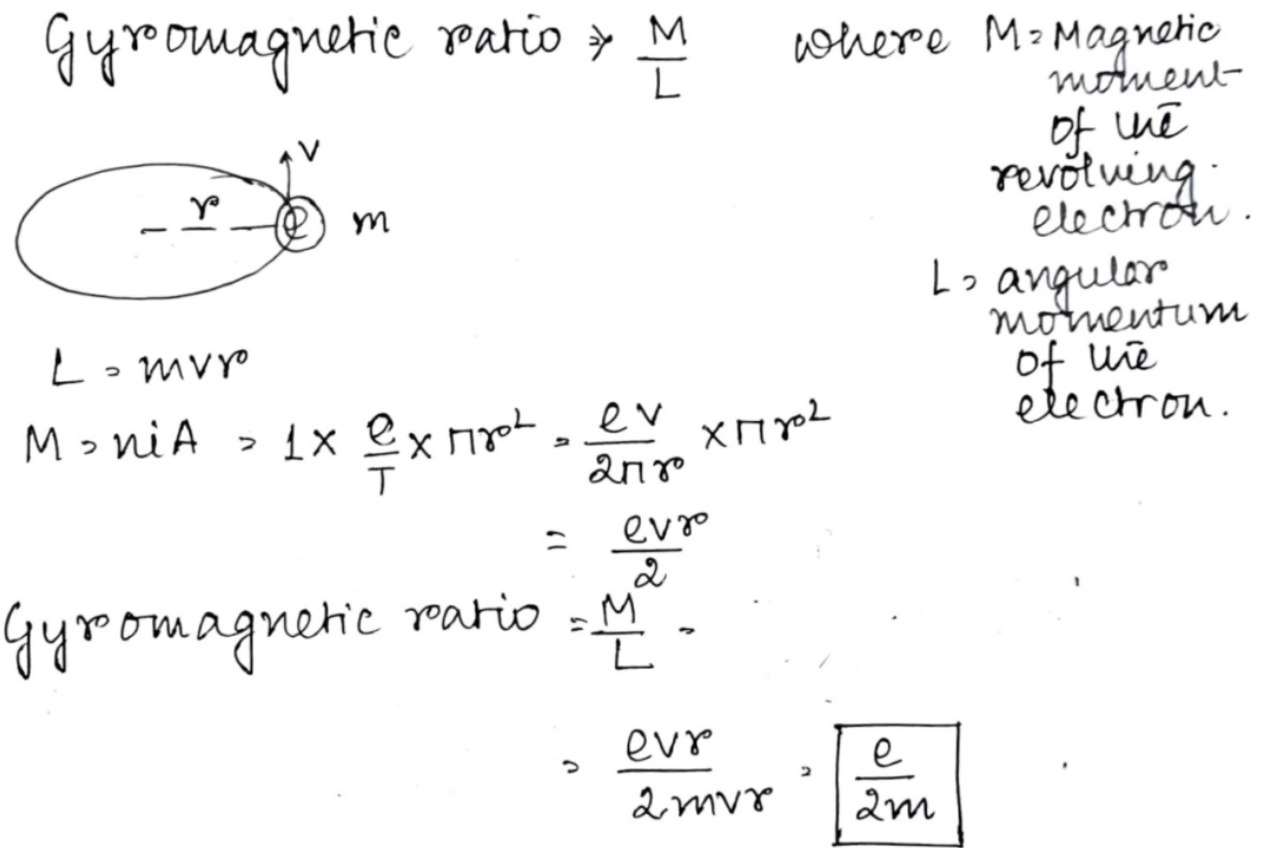 Gyromagnetic ratio ⇒ M/L where M = Magnetic
moment
of the
revolving
electron.
L = angular
momentum
of the
electron.
v
r
e
m
L = mvr
M = niA = 1 × e/T × πr² = ev/2πr × πr²
= evr/2
Gyromagnetic ratio = M/L =
= evr/2mvr = e/2m